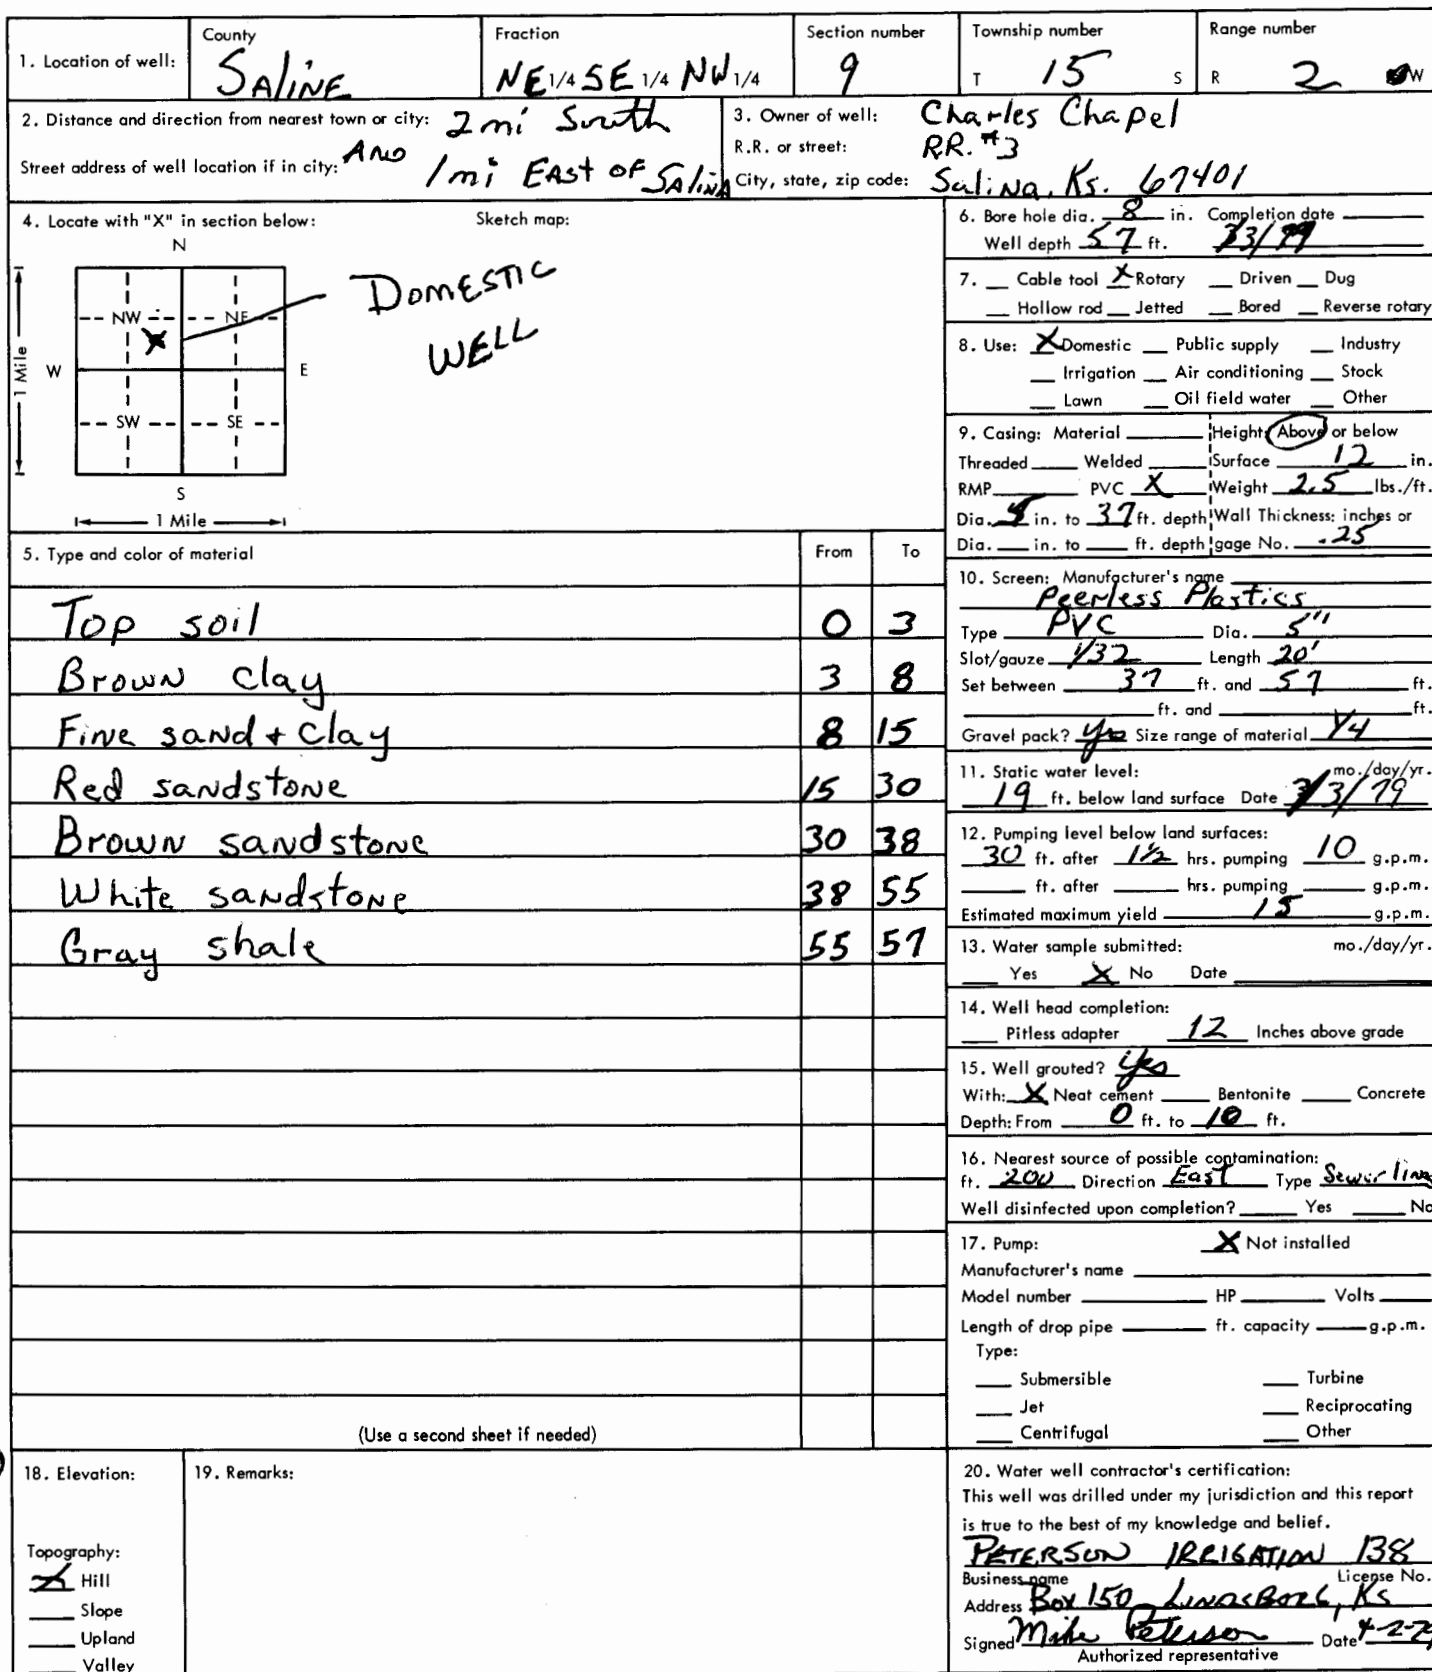 1. Location of well: County SALINE Fraction NE 1/4 SE 1/4 NW 1/4 Section number 9 Township number T 15 S Range number R 2 W
2. Distance and direction from nearest town or city: 2 mi South
Street address of well location if in city: AND 1 mi EAST OF SALINA
3. Owner of well: Charles Chapel
R.R. or street: RR. #3
City, state, zip code: Salina, Ks. 67401
4. Locate with "X" in section below: Sketch map:
N
NW NE
X
W E
SW SE
S
1 Mile
1 Mile
DOMESTIC
WELL
5. Type and color of material From To
Top soil 0 3
Brown clay 3 8
Fine sand + clay 8 15
Red sandstone 15 30
Brown sandstone 30 38
White sandstone 38 55
Gray shale 55 57
(Use a second sheet if needed)
6. Bore hole dia. 8 in. Completion date
Well depth 57 ft. 3/3/79
7. Cable tool X Rotary Driven Dug
Hollow rod Jetted Bored Reverse rotary
8. Use: X Domestic Public supply Industry
Irrigation Air conditioning Stock
Lawn Oil field water Other
9. Casing: Material Height: Above or below
Threaded Welded Surface 12 in.
RMP PVC X Weight 2.5 lbs./ft.
Dia. 5 in. to 37 ft. depth Wall Thickness: inches or
Dia. in. to ft. depth gage No. .25
10. Screen: Manufacturer's name
Peerless Plastics
Type PVC Dia. 5"
Slot/gauze 1/32 Length 20'
Set between 37 ft. and 57 ft.
ft. and ft.
Gravel pack? yes Size range of material 1/4
11. Static water level: mo./day/yr.
19 ft. below land surface Date 3/3/79
12. Pumping level below land surfaces:
30 ft. after 1 1/2 hrs. pumping 10 g.p.m.
ft. after hrs. pumping g.p.m.
Estimated maximum yield 15 g.p.m.
13. Water sample submitted: mo./day/yr.
Yes X No Date
14. Well head completion:
Pitless adapter 12 Inches above grade
15. Well grouted? yes
With: X Neat cement Bentonite Concrete
Depth: From 0 ft. to 10 ft.
16. Nearest source of possible contamination:
ft. 200 Direction East Type Sewer line
Well disinfected upon completion? Yes No
17. Pump: X Not installed
Manufacturer's name
Model number HP Volts
Length of drop pipe ft. capacity g.p.m.
Type:
Submersible Turbine
Jet Reciprocating
Centrifugal Other
18. Elevation:
Topography:
X Hill
Slope
Upland
Valley
19. Remarks:
20. Water well contractor's certification:
This well was drilled under my jurisdiction and this report
is true to the best of my knowledge and belief.
PETERSON IRRIGATION 138
Business name License No.
Address Box 150 LINDSBORG, KS
Signed Mike Peterson Date 4-2-79
Authorized representative